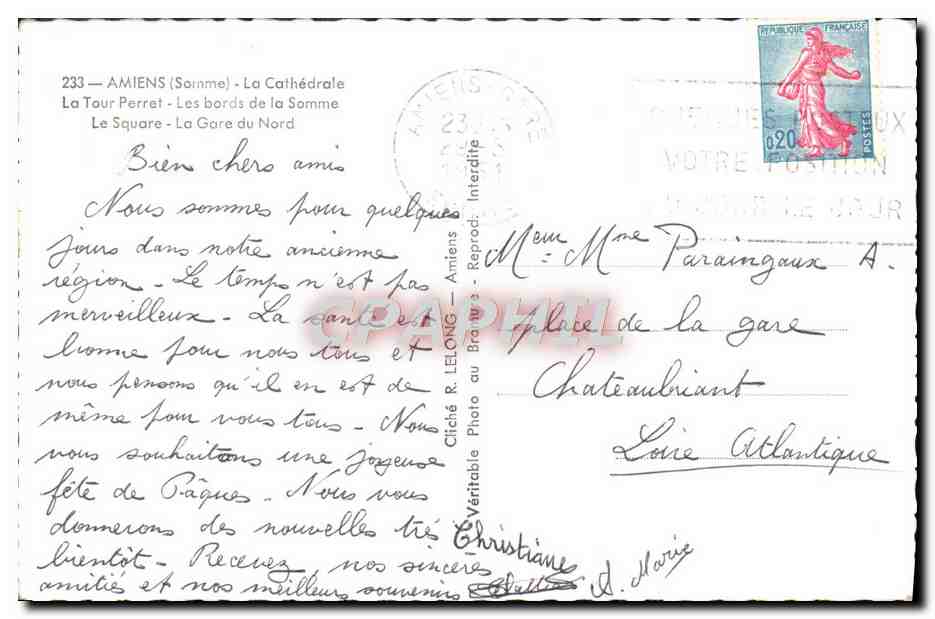 233 — AMIENS (Somme) - La Cathédrale
La Tour Perret - Les bords de la Somme
Le Square - La Gare du Nord
Bien chers amis
Nous sommes pour quelques
jours dans notre ancienne
région - Le temps n'est pas
merveilleux - La santé est
bonne pour nous tous et
nous pensons qu'il en est de
même pour vous tous - Nous
vous souhaitons une joyeuse
fête de Pâques - Nous vous
donnerons des nouvelles très
bientôt - Recevez, nos sincères
amitiés et nos meilleurs souvenirs
Christiane
A. Marie
Cliché R. LELONG — Amiens
Véritable Photo au Bromure - Reprod. Interdite
AMIENS-GARE
REPUBLIQUE FRANÇAISE
0,20
POSTES
VOTRE POSITION
LE JOUR
Meur = Mme Paraingaux A.
place de la gare
Chateaubriant
Loire Atlantique
CPAPHIL